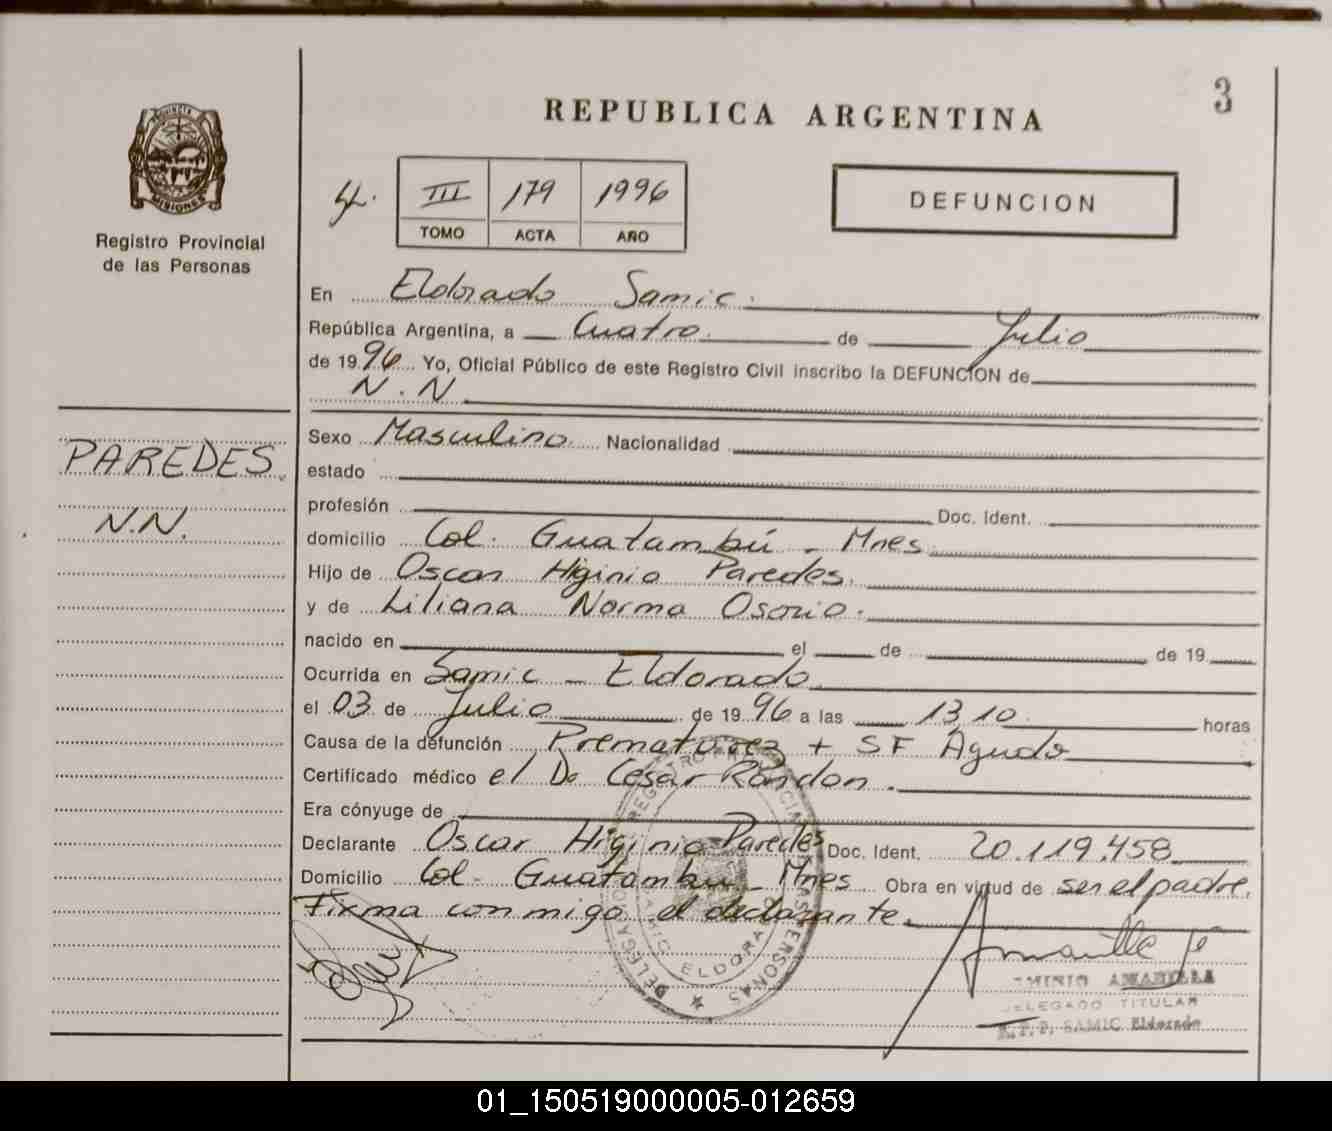 3
REPUBLICA ARGENTINA
PROVINCIA DE MISIONES
Registro Provincial
de las Personas
III 179 1996
TOMO ACTA AÑO
DEFUNCION
En Eldorado Samic.
República Argentina, a Cuatro de Julio
de 1996 Yo, Oficial Público de este Registro Civil inscribo la DEFUNCION de
N.N
PAREDES
N.N.
Sexo Masculino Nacionalidad
estado
profesión Doc. Ident.
domicilio Col. Guatambú - Mnes
Hijo de Oscar Higinio Paredes.
y de Liliana Norma Osorio.
nacido en el de de 19
Ocurrida en Samic - Eldorado
el 03 de Julio de 1996 a las 13 10 horas
Causa de la defunción Prematurez + SF Agudo
Certificado médico el Dr Cesar Rondon.
Era cónyuge de
Declarante Oscar Higinio Paredes Doc. Ident. 20.119.458
Domicilio Col. Guatambu - Mnes Obra en virtud de ser el padre.
Firma conmigo el declarante.
AMARILLA
DELEGADO TITULAR
R.P.P. SAMIC Eldorado
01_150519000005-012659